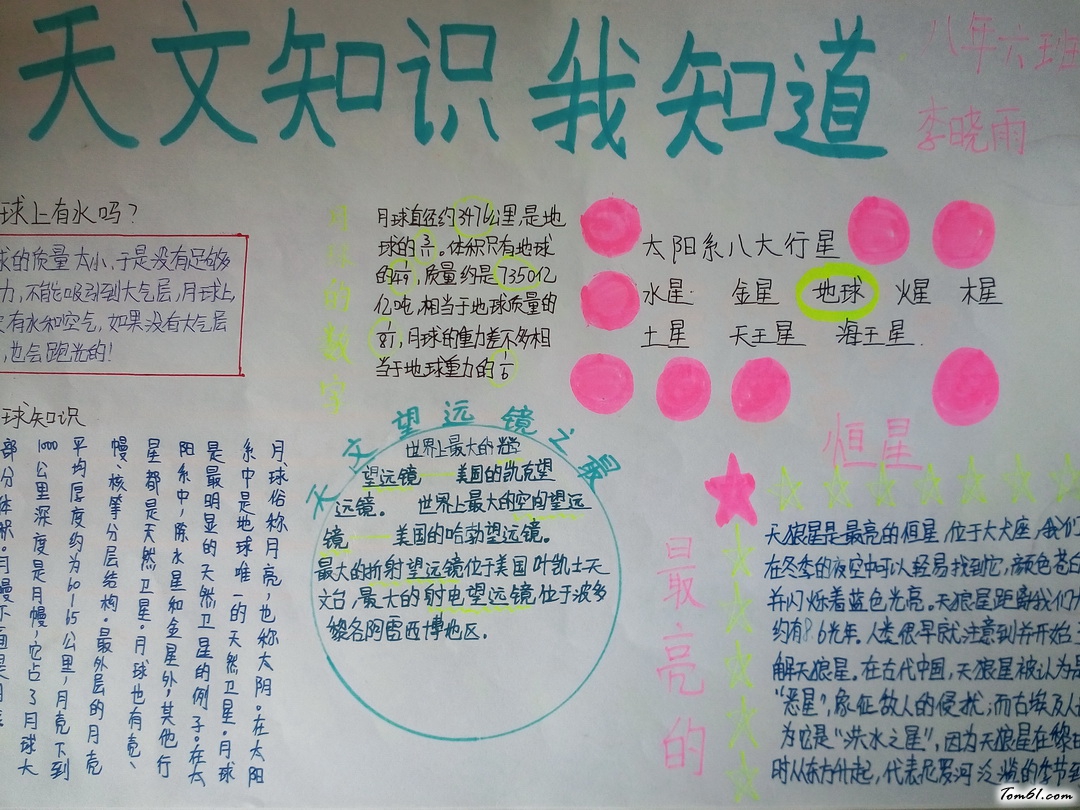 天文知识 我知道
八年六班
李晓雨
球上有水吗？
球的质量太小,于是没有足够
力,不能吸引到大气层,月球上
有水和空气,如果没有大气层
,也会跑光的!
月球的数字
月球直径约3476公里,是地
球的3/11。体积只有地球
的1/49,质量约是7350亿
亿吨,相当于地球质量的
1/81,月球的重力差不多相
当于地球重力的1/6
太阳系八大行星
水星 金星 地球 火星 木星
土星 天王星 海王星.
球知识
月球俗称月亮,也称太阴。在太阳
系中是地球唯一的天然卫星。月球
是最明显的天然卫星的例子。在太
阳系中,除水星和金星外,其他行
星都是天然卫星。月球也有壳、
幔、核等分层结构。最外层的月壳
平均厚度约为60-65公里,月壳下到
1000公里深度是月幔,它占了月球大
部分体积。月幔下面是月
天文望远镜之最
世界上最大的光学
望远镜——美国的凯克望
远镜。 世界上最大的空间望远
镜——美国的哈勃望远镜。
最大的折射望远镜位于美国叶凯士天
文台,最大的射电望远镜,位于波多
黎各阿雷西博地区.
最亮的
恒星
天狼星是最亮的恒星,位于大犬座,我们
在冬季的夜空中可以轻易找到它,颜色苍白
并闪烁着蓝色光亮。天狼星距离我们
约有8.6光年.人类很早就注意到并开始
解天狼星。在古代中国,天狼星被认为是
“恶星”,象征敌人的侵扰;而古埃及人
为它是“洪水之星”,因为天狼星在黎
时从东方升起,代表尼罗河泛滥的季节到
Tom61.com